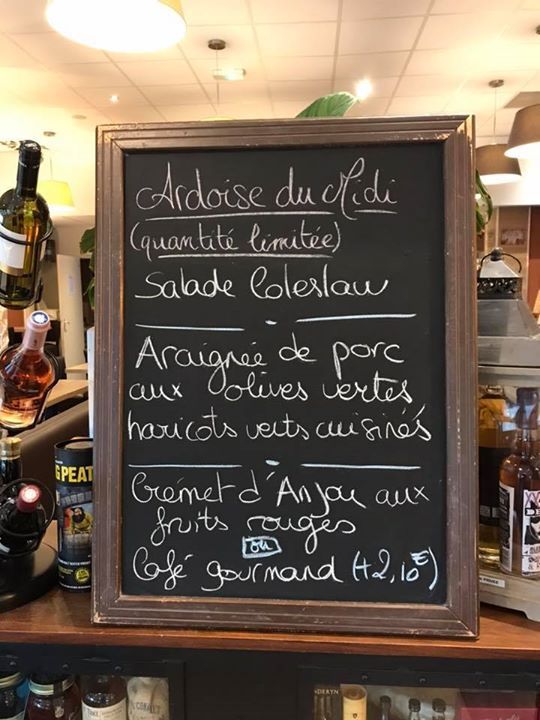 Ardoise du Midi
(quantité limitée)
Salade Coleslaw
Araignée de porc
aux olives vertes
haricots verts cuisinés
Crémet d'Anjou aux
fruits rouges
ou
Café gourmand (+2,10€)
G PEAT